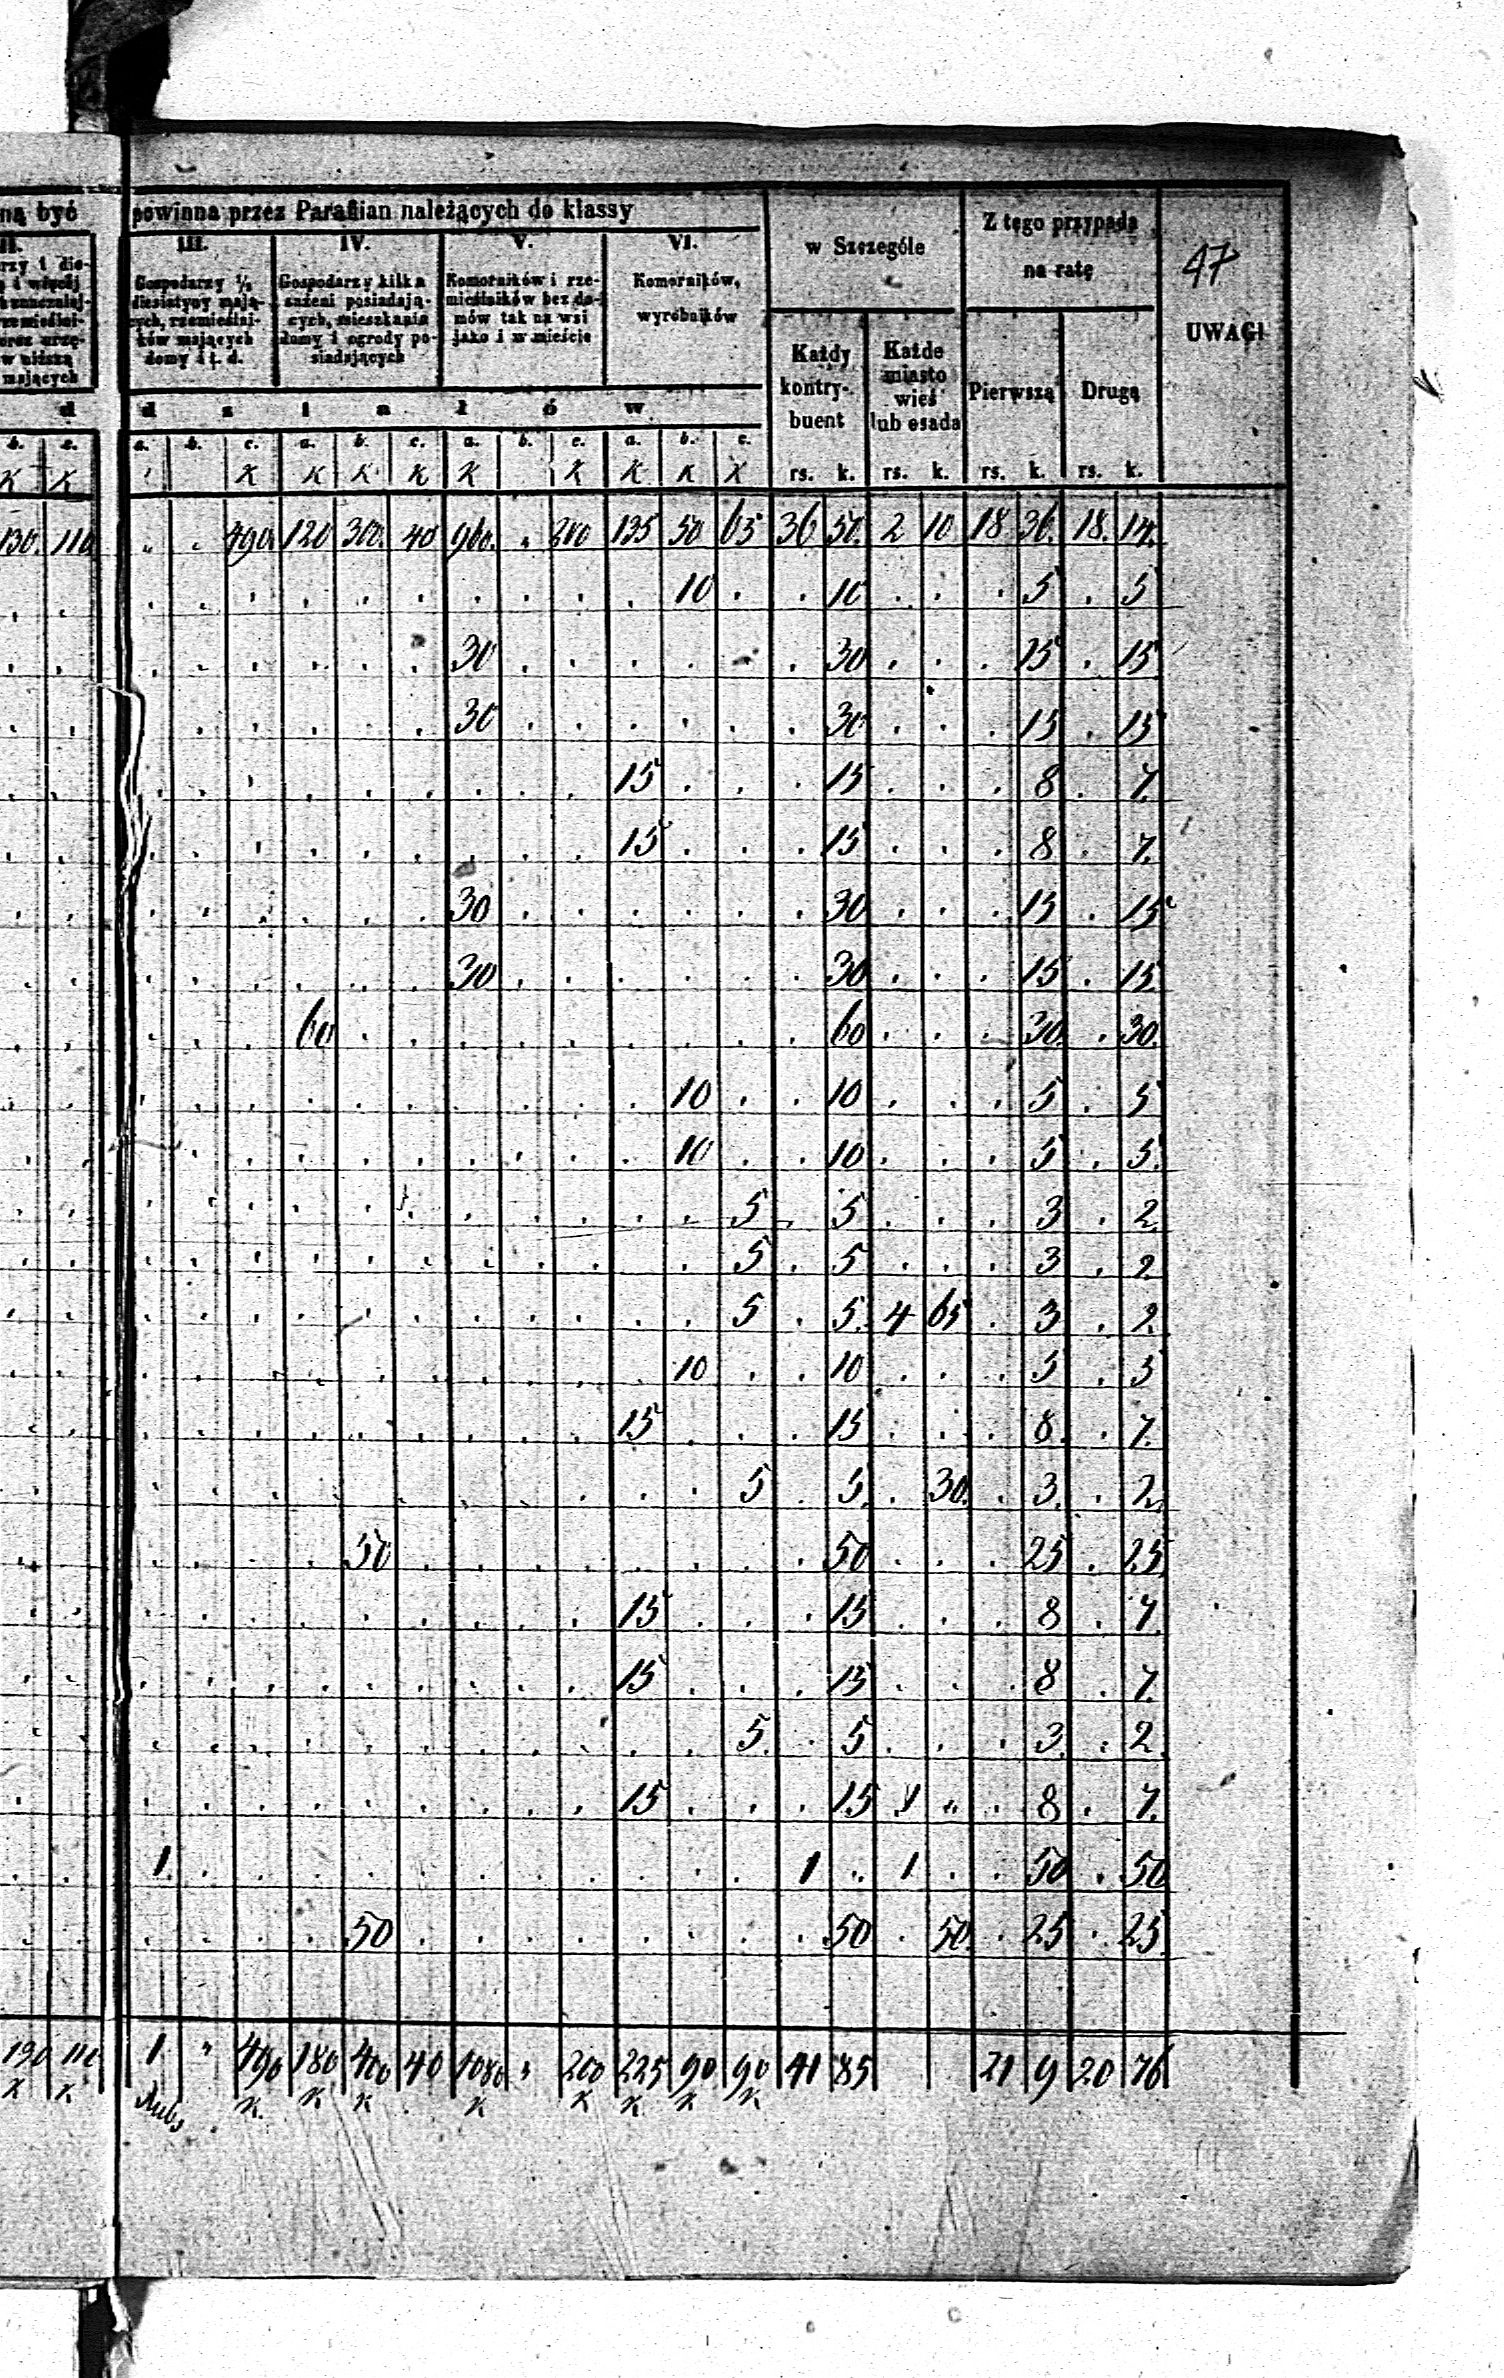 ną być powinna przez Parafian należących do klassy
w Szczególe
Z tego przypada na ratę
47
UWAGI
II. III. IV. V. VI.
rzy i dzie-
mających
Gospodarzy ½ diesiatyny mają-
cych, rzemieślni-
ków mających
domy i t. d.
Gospodarzy kilka
sażeni posiadają-
cych, mieszkania
domy i ogrody po-
siadających
Komorników i rze-
mieślników bez do-
mów tak na wsi
jako i w mieście
Komorników,
wyrobników
Każdy kontry-
buent
Każde miasto
wieś
lub osada
Pierwszą
Drugą
d d z i a ł ó w
b. c. a. b. c. a. b. c. a. b. c. a. b. c.
K K K K K K K K K K X rs. k. rs. k. rs. k. rs. k.
130. 110 " " 490. 120 300. 40 960. " 200 135 50 65 36 50. 2 10 18 36. 18. 14.
10 . . 10 . . . 5 . 5
30 . . . . . . 30 . . . 15 . 15
30 . . . . . . 30 . . . 15 . 15
15 . . . 15 . . . 8 . 7.
15 . . . 15 . . . 8 . 7.
30 . . . . . . 30 . . . 15 . 15
30 . . . . . . 30 . . . 15 . 15
60 . . . . . . . . . 60 . . . 30. . 30.
10 . . 10 . . . 5 . 5
10 . . 10 . . . 5 . 5.
5 . 5 . . . 3 . 2
5 . 5 . . . 3 . 2
5 . 5. 4 65 . 3 . 2
10 . . 10 . . . 5 . 5
15 . . . 15 . . . 8 . 7.
5 . 5. . 30. . 3. . 2
50 . . . . . . . . 50 . . . 25 . 25
15 . . . 15 . . . 8 . 7
15 . . . 15 . . . 8 . 7
5. . 5 . . . 3. . 2
15 . . . 15 1 " . 8 . 7.
1. . . . . . . . . . . . 1 . 1 . . 50 . 50
50 . . . . . . . . 50 . 50. . 25 . 25
190 110 1 " 490 180 400 40 1080 " 200 225 90 90 41 85 21 9 20 76
K K Rubs K. K K K K K. K K